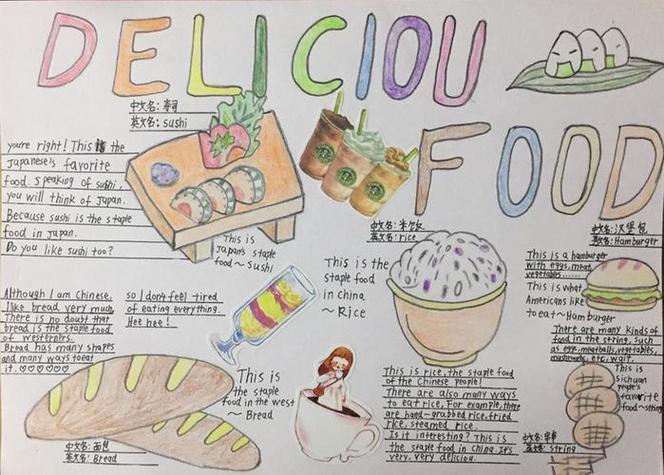 DELICIOU
FOOD
中文名：寿司
英文名：sushi
you're right! This is the
Japanese's favorite
food. Speaking of sushi,
you will think of Japan.
Because sushi is the staple
food in Japan.
Do you like sushi too?
This is
Japan's staple
food~sushi
中文名：米饭
英文名：rice
This is the
staple food
in china
~Rice
中文名：汉堡包
英文名：Hamburger
This is a hamburger
with eggs, meat,
vegetables......
This is what
Americans like
to eat~Hamburger
There are many kinds of
food in the string, such
as egg, meatballs, vegetables,
mushrooms, etc, wait.
This is
sichuan
people's
favorite
food~string
中文名：串串
英文名：string
Although I am Chinese,
I like bread very much.
There is no doubt that
bread is the staple food
of westerners.
Bread has many shapes
and many ways to eat
it.♡♡♡♡♡♡
so I don't feel tired
of eating everything.
Hee hee!
This is
the staple
food in the west
~Bread
中文名：面包
英文名：Bread
This is rice, the staple food
of the Chinese people!
There are also many ways
to eat rice. For example, there
are hand-grabbed rice, fried
rice, steamed rice.
Is it interesting? This is
the staple food in China. It's
very, very deliciou.